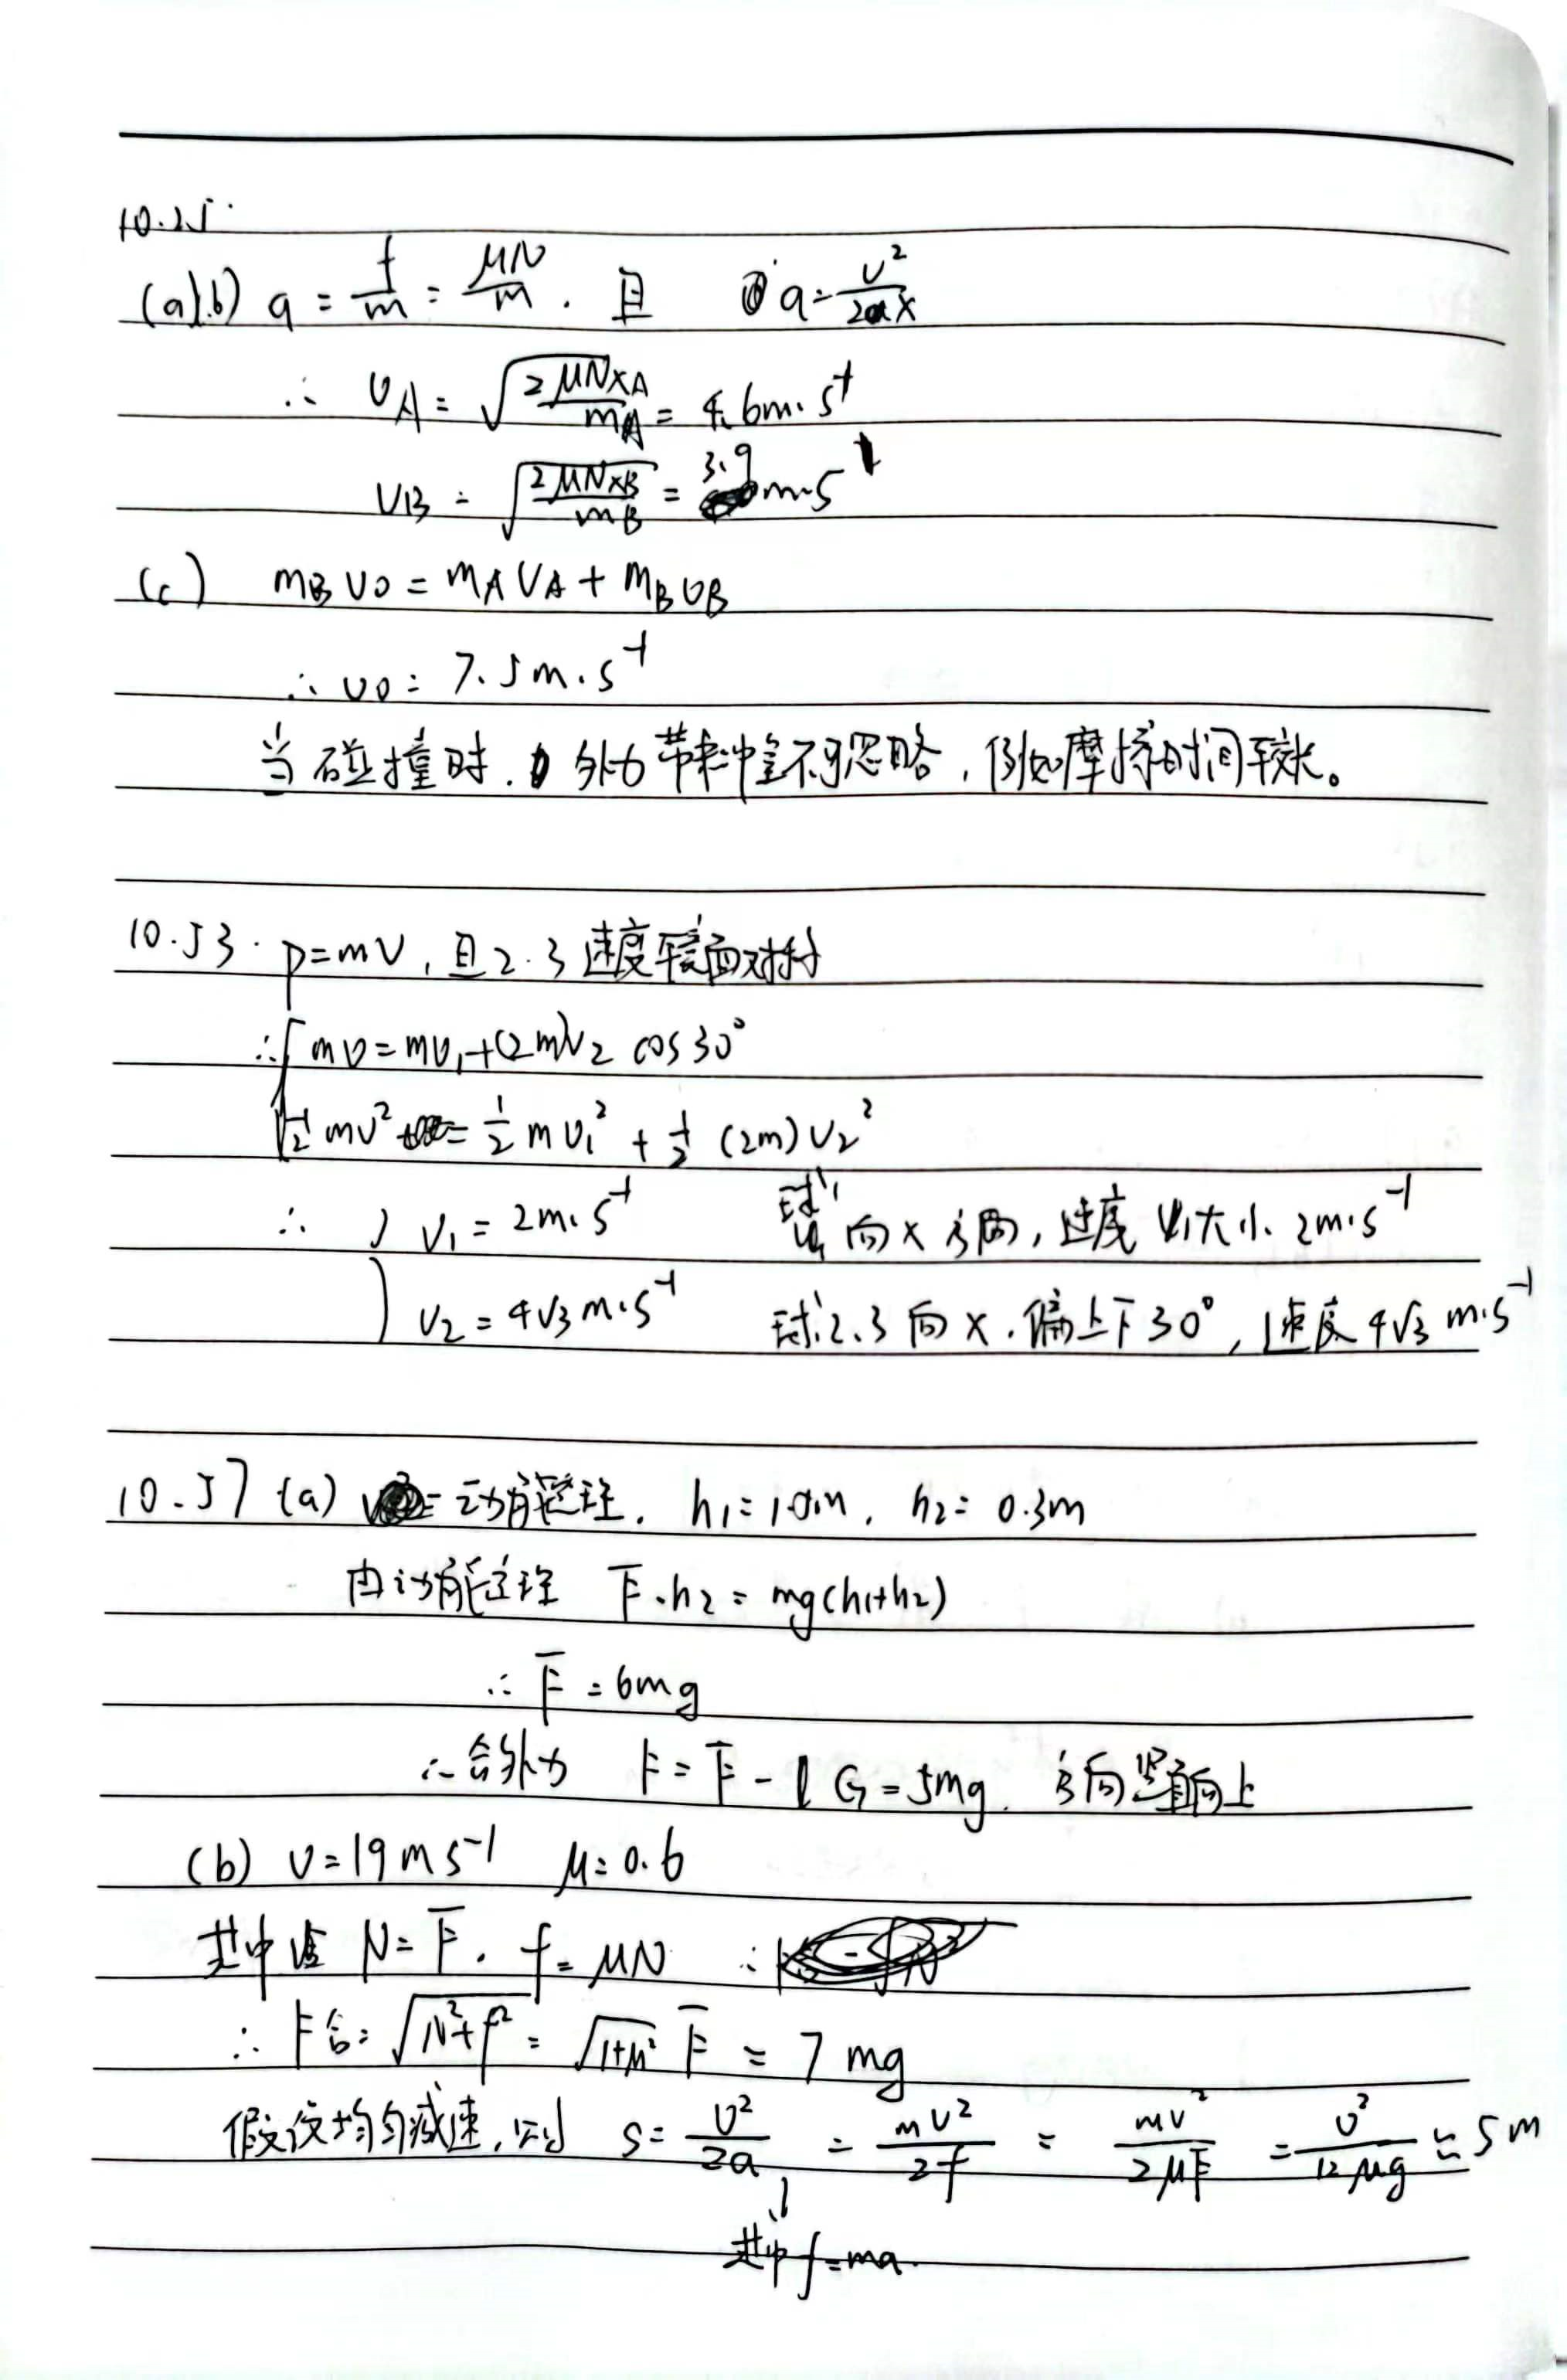 10.25.
(a)(b) a = f/m = μN/m . 且 a = v²/2x
∴ vA = √(2μNxA/mA) = 4.6m·s⁻¹
vB = √(2μNxB/mB) = 3.9 m·s⁻¹
(c) mBv0 = mAvA + mBvB
∴ v0 = 7.5m·s⁻¹
当碰撞时. 外力带来冲量不可忽略, 例如摩擦时间较长。
10.53. p=mv, 且2.3速度镜面对称
∴ { mv = mv₁+(2m)v₂ cos30°
½mv² = ½mv₁² + ½(2m)v₂²
∴ { v₁ = 2m·s⁻¹ 球1 向x方向, 速度 大小 2m·s⁻¹
v₂ = 4√3 m·s⁻¹ 球2.3向x.偏上下30°, 速度4√3 m·s⁻¹
10.57 (a) 动能定理. h₁= 1.5m, h₂= 0.3m
由动能定理 F̄·h₂ = mg(h₁+h₂)
∴ F̄ = 6mg
∴ 合外力 F = F̄ - G = 5mg. 方向竖直向上
(b) v=19ms⁻¹ μ=0.6
其中 N=F̄. f=μN
∴ F合= √(N²+f²) = √(1+μ²) F̄ = 7mg
假设均匀减速, 则 s= v²/2a = mv²/2f = mv²/2μF̄ = v²/12μg ≈ 5m
其中f=ma.